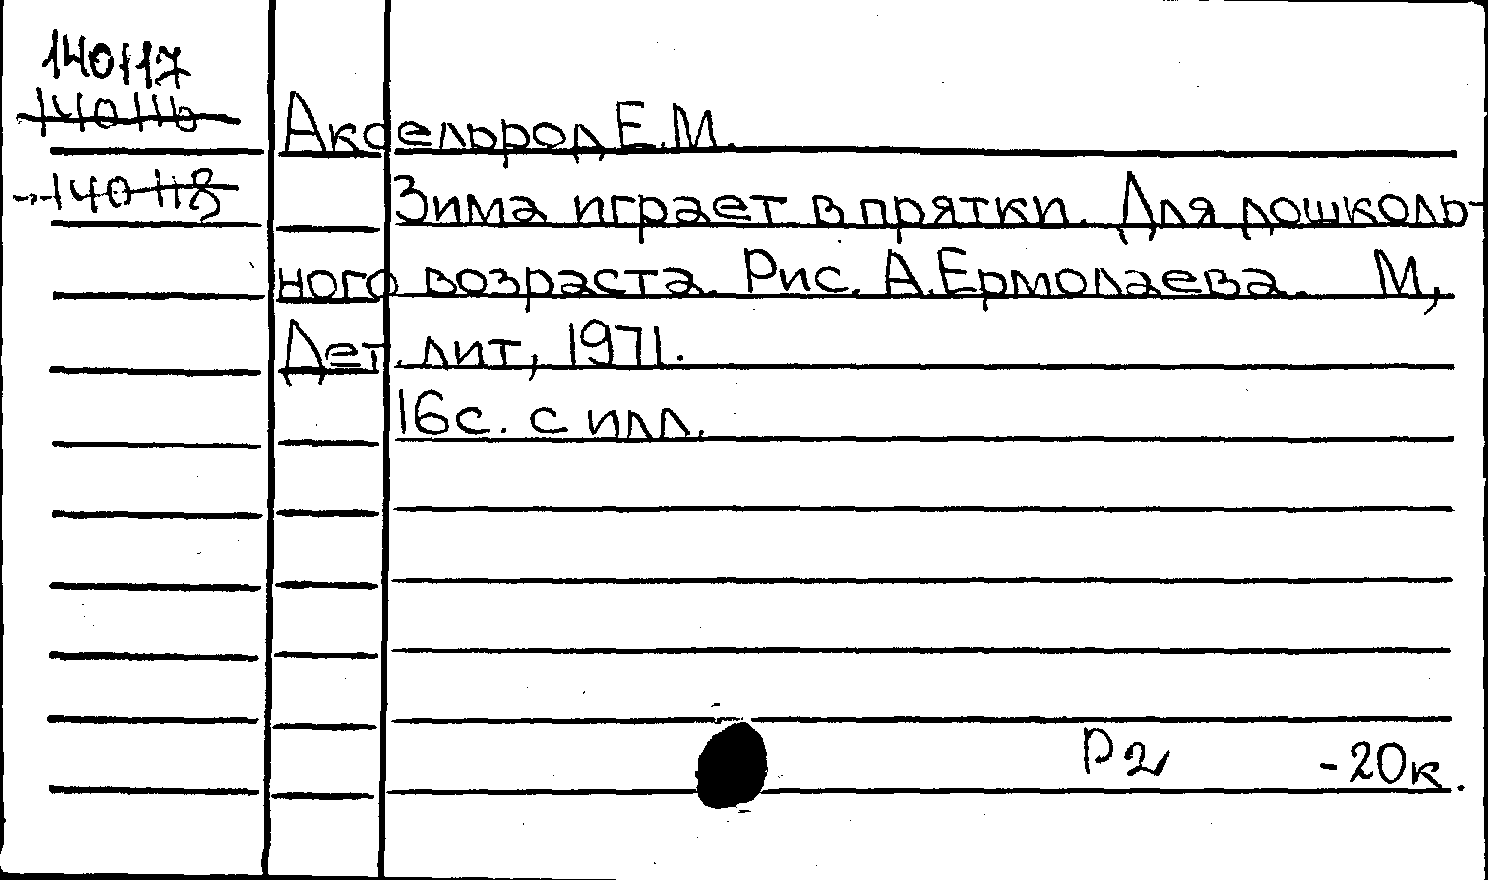 140117
140116
140118
Аксельрод Е.М.
Зима играет в прятки. Для дошколь-
ного возраста. Рис. А.Ермолаева. М,
Дет. лит, 1971.
16с. с илл.
Р2 -20к.